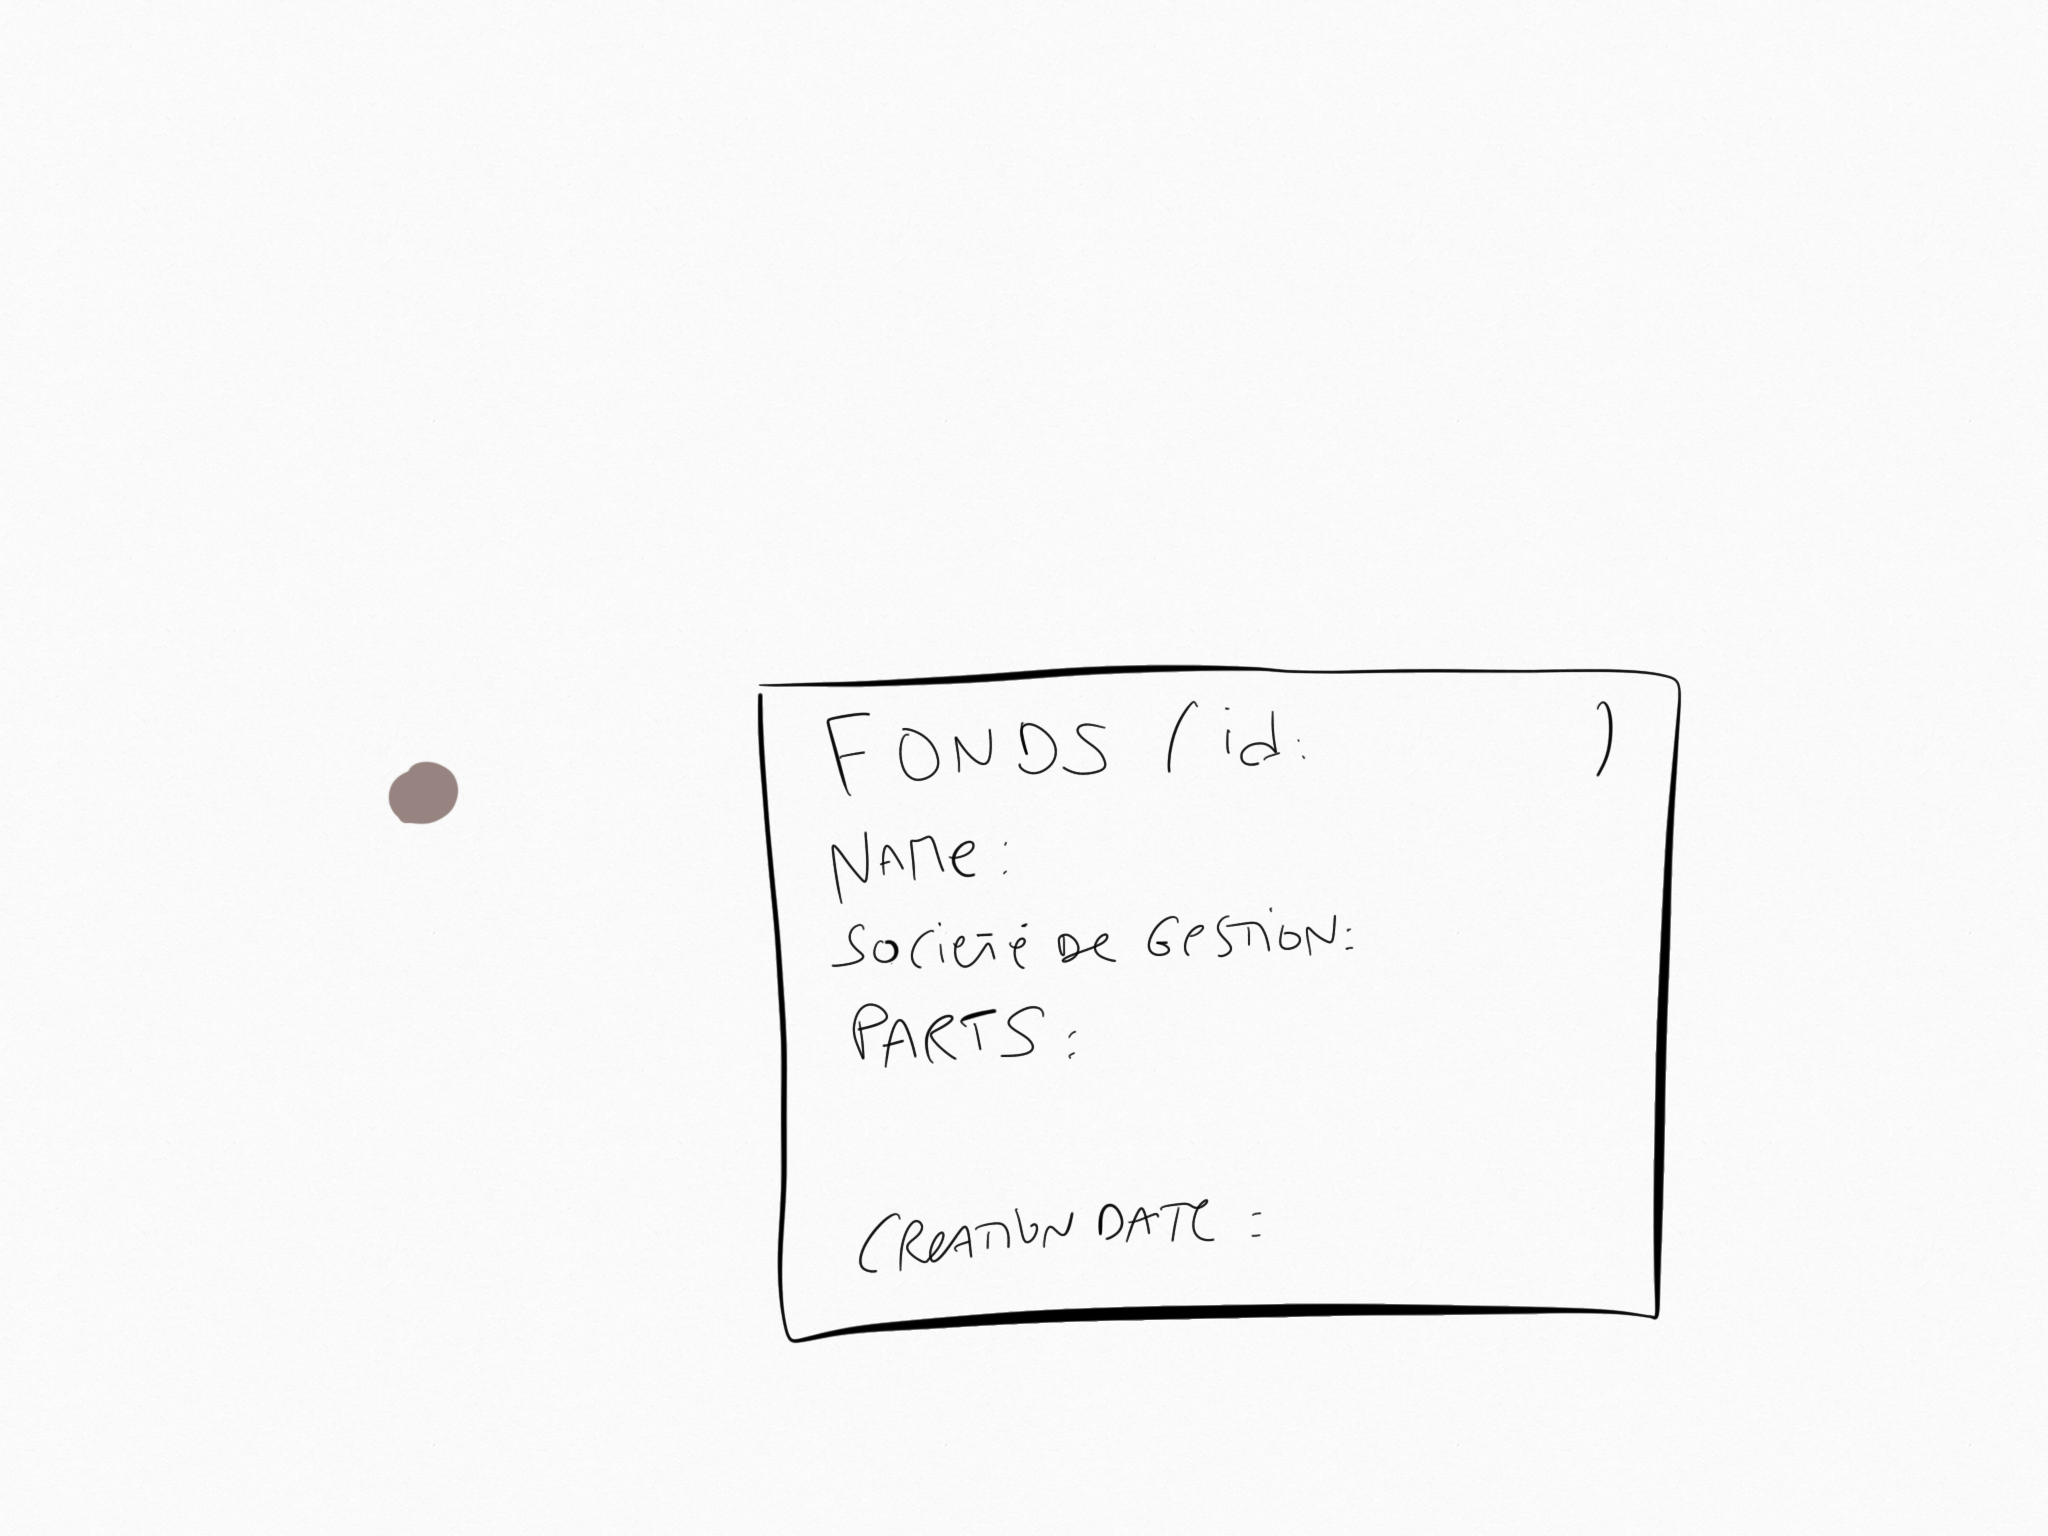 FONDS (id: )
NAME:
SOCIETÉ DE GESTION:
PARTS:
CREATION DATE: